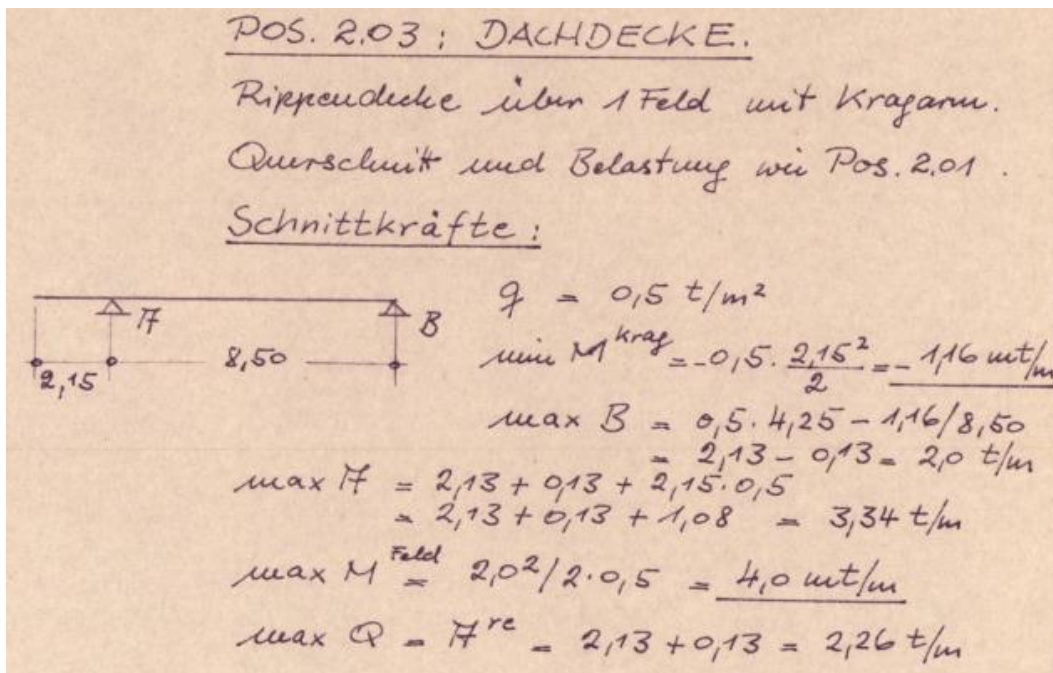 POS. 2.03 : DACHDECKE.
Rippendecke über 1 Feld mit Kragarm.
Querschnitt und Belastung wie Pos. 2.01.
Schnittkräfte :
A
B
2,15
8,50
q = 0,5 t/m²
min M^Krag = -0,5 · 2,15²/2 = -1,16 mt/m
max B = 0,5 · 4,25 - 1,16/8,50
= 2,13 - 0,13 = 2,0 t/m
max A = 2,13 + 0,13 + 2,15 · 0,5
= 2,13 + 0,13 + 1,08 = 3,34 t/m
max M^Feld = 2,0²/2·0,5 = 4,0 mt/m
max Q = A^re = 2,13 + 0,13 = 2,26 t/m